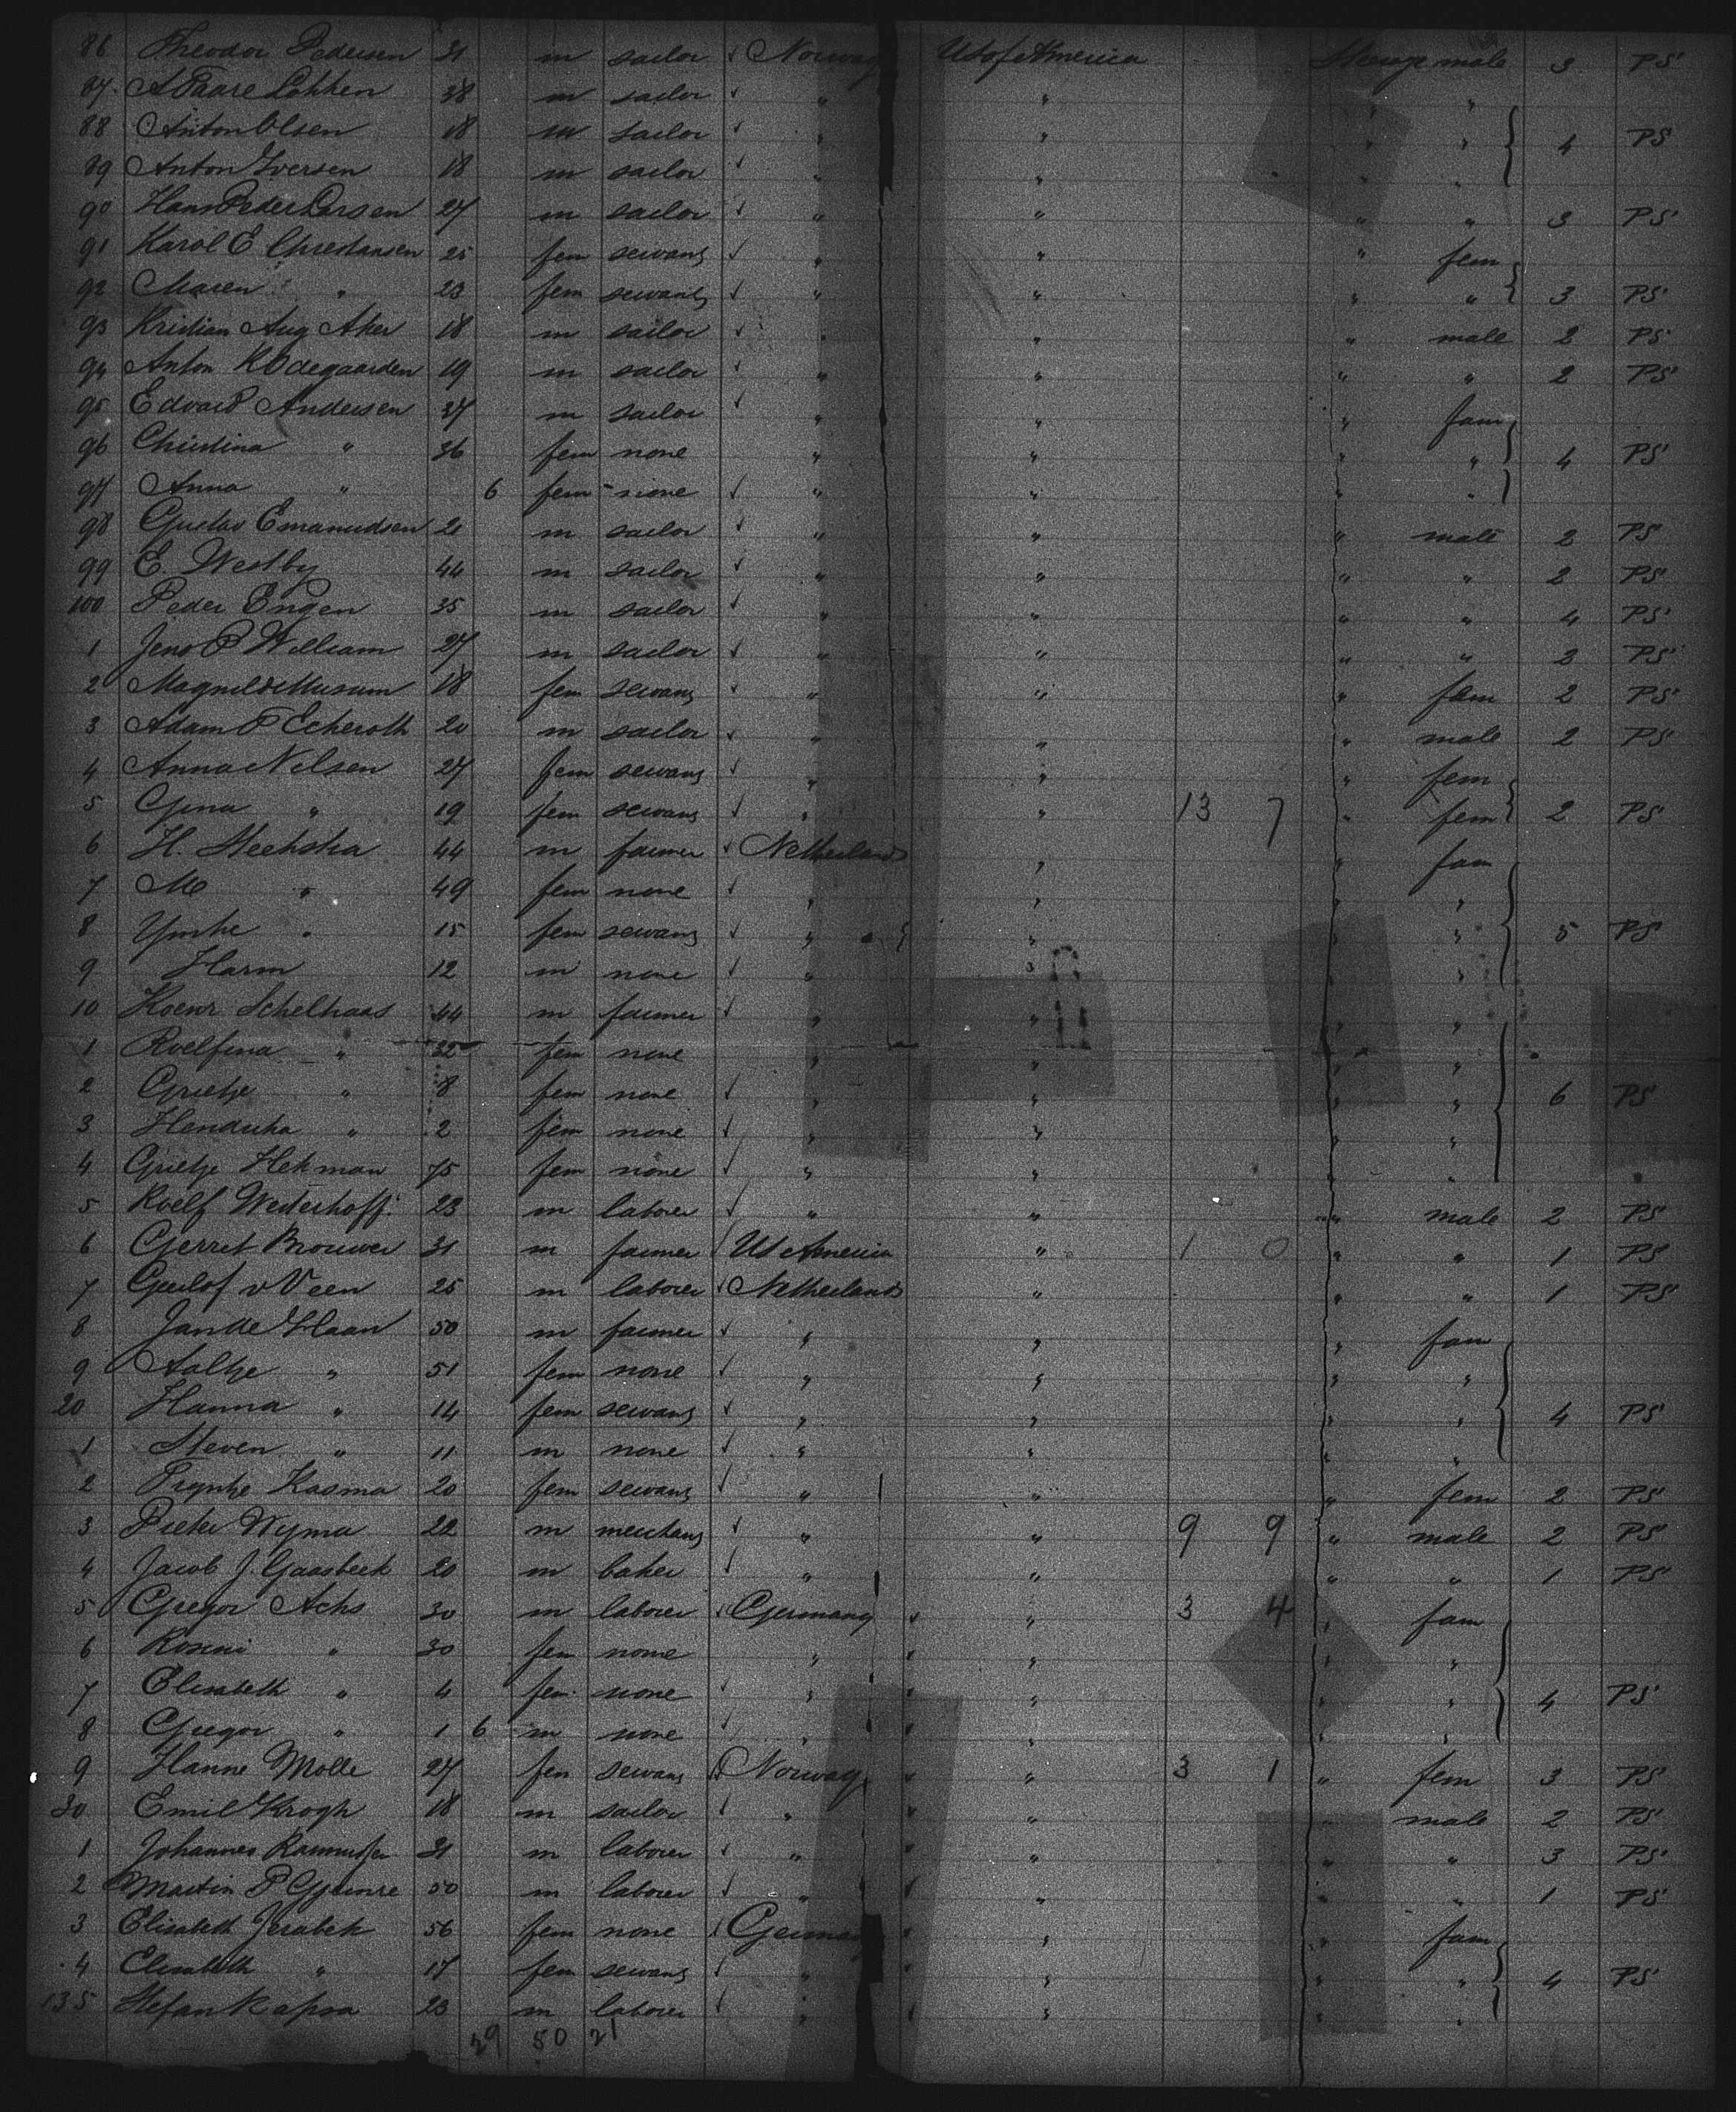 86 Theodor Pedersen 31 m sailor Norway U S of America Steerage male 3 PS
87 A Paare Lokken 38 m sailor " " " "
88 Anton Olsen 18 m sailor " " " " 4 PS
89 Anton Iversen 18 m sailor " " " "
90 Hans Peder Larsen 27 m sailor " " " " 3 PS
91 Karol E Christiansen 25 fem servant " " " fem
92 Maren " 23 fem servant " " " " 3 PS
93 Kristian Aug Aker 18 m sailor " " " male 2 PS
94 Anton K Odegaarden 19 m sailor " " " " 2 PS
95 Edvard Andersen 37 m sailor " " " fam
96 Christina " 36 fem none " " " " 4 PS
97 Anna " 6 fem none " " " "
98 Gustav Emanuelsen 20 m sailor " " " male 2 PS
99 E. Westby 44 m sailor " " " " 2 PS
100 Peder Engen 35 m sailor " " " " 4 PS
1 Jens P William 27 m sailor " " " " 3 PS
2 Magnild 18 fem servant " " " fem 2 PS
3 Adam P Eckeroth 20 m sailor " " " male 2 PS
4 Anna Nelsen 27 fem servant " " " fem
5 Gina " 19 fem servant " " 13 7 " fem 2 PS
6 H. 44 m farmer Netherlands " " fam
7 M " 49 fem none " " " "
8 Ymke " 15 fem servant " " " " 5 PS
9 Harm 12 m none " " "
10 Koenr Schelhaas 44 m farmer " " " "
1 Roelfina " 32 fem none " "
2 Grietje " 8 fem none " " " " 6 PS
3 Hendrika " 2 fem none " " " "
4 Grietje Hekman 75 fem none " " " "
5 Roelf Westerhoff 23 m laborer " " " male 2 PS
6 Gerret Brouwer 31 m farmer US America " 1 0 " " 1 PS
7 Geelof v Veen 25 m laborer Netherlands " " " 1 PS
8 Jan de Haan 50 m farmer " " " fam
9 Aaltje " 51 fem none " " " "
20 Hanna " 14 fem servant " " " " 4 PS
1 Steven " 11 m none " " " "
2 Tryntje Kasma 20 fem servant " " " fem 2 PS
3 Pieter Wyma 22 m merchant " " 9 9 " male 2 PS
4 Jacob J. Gaasbeek 20 m baker " " " " 1 PS
5 Gregor Achs 30 m laborer Germany " 3 4 " fam
6 " 30 fem none " " " "
7 Elisabeth " 4 fem none " " " " 4 PS
8 Gregor " 1 6 m none " " " "
9 Hanne Molle 27 fem servant Norway " 3 1 " fem 3 PS
30 Emil Krogh 18 m sailor " " " male 2 PS
1 Johannes Rasmussen 31 m laborer " " " " 3 PS
2 Martin P 50 m laborer " " " " 1 PS
3 Elisabeth Jerabek 56 fem none Germany " " fam
4 Elisabeth " 17 fem servant " " " " 4 PS
135 Stefan Kapsa 23 m laborer " " " "
29 50 21